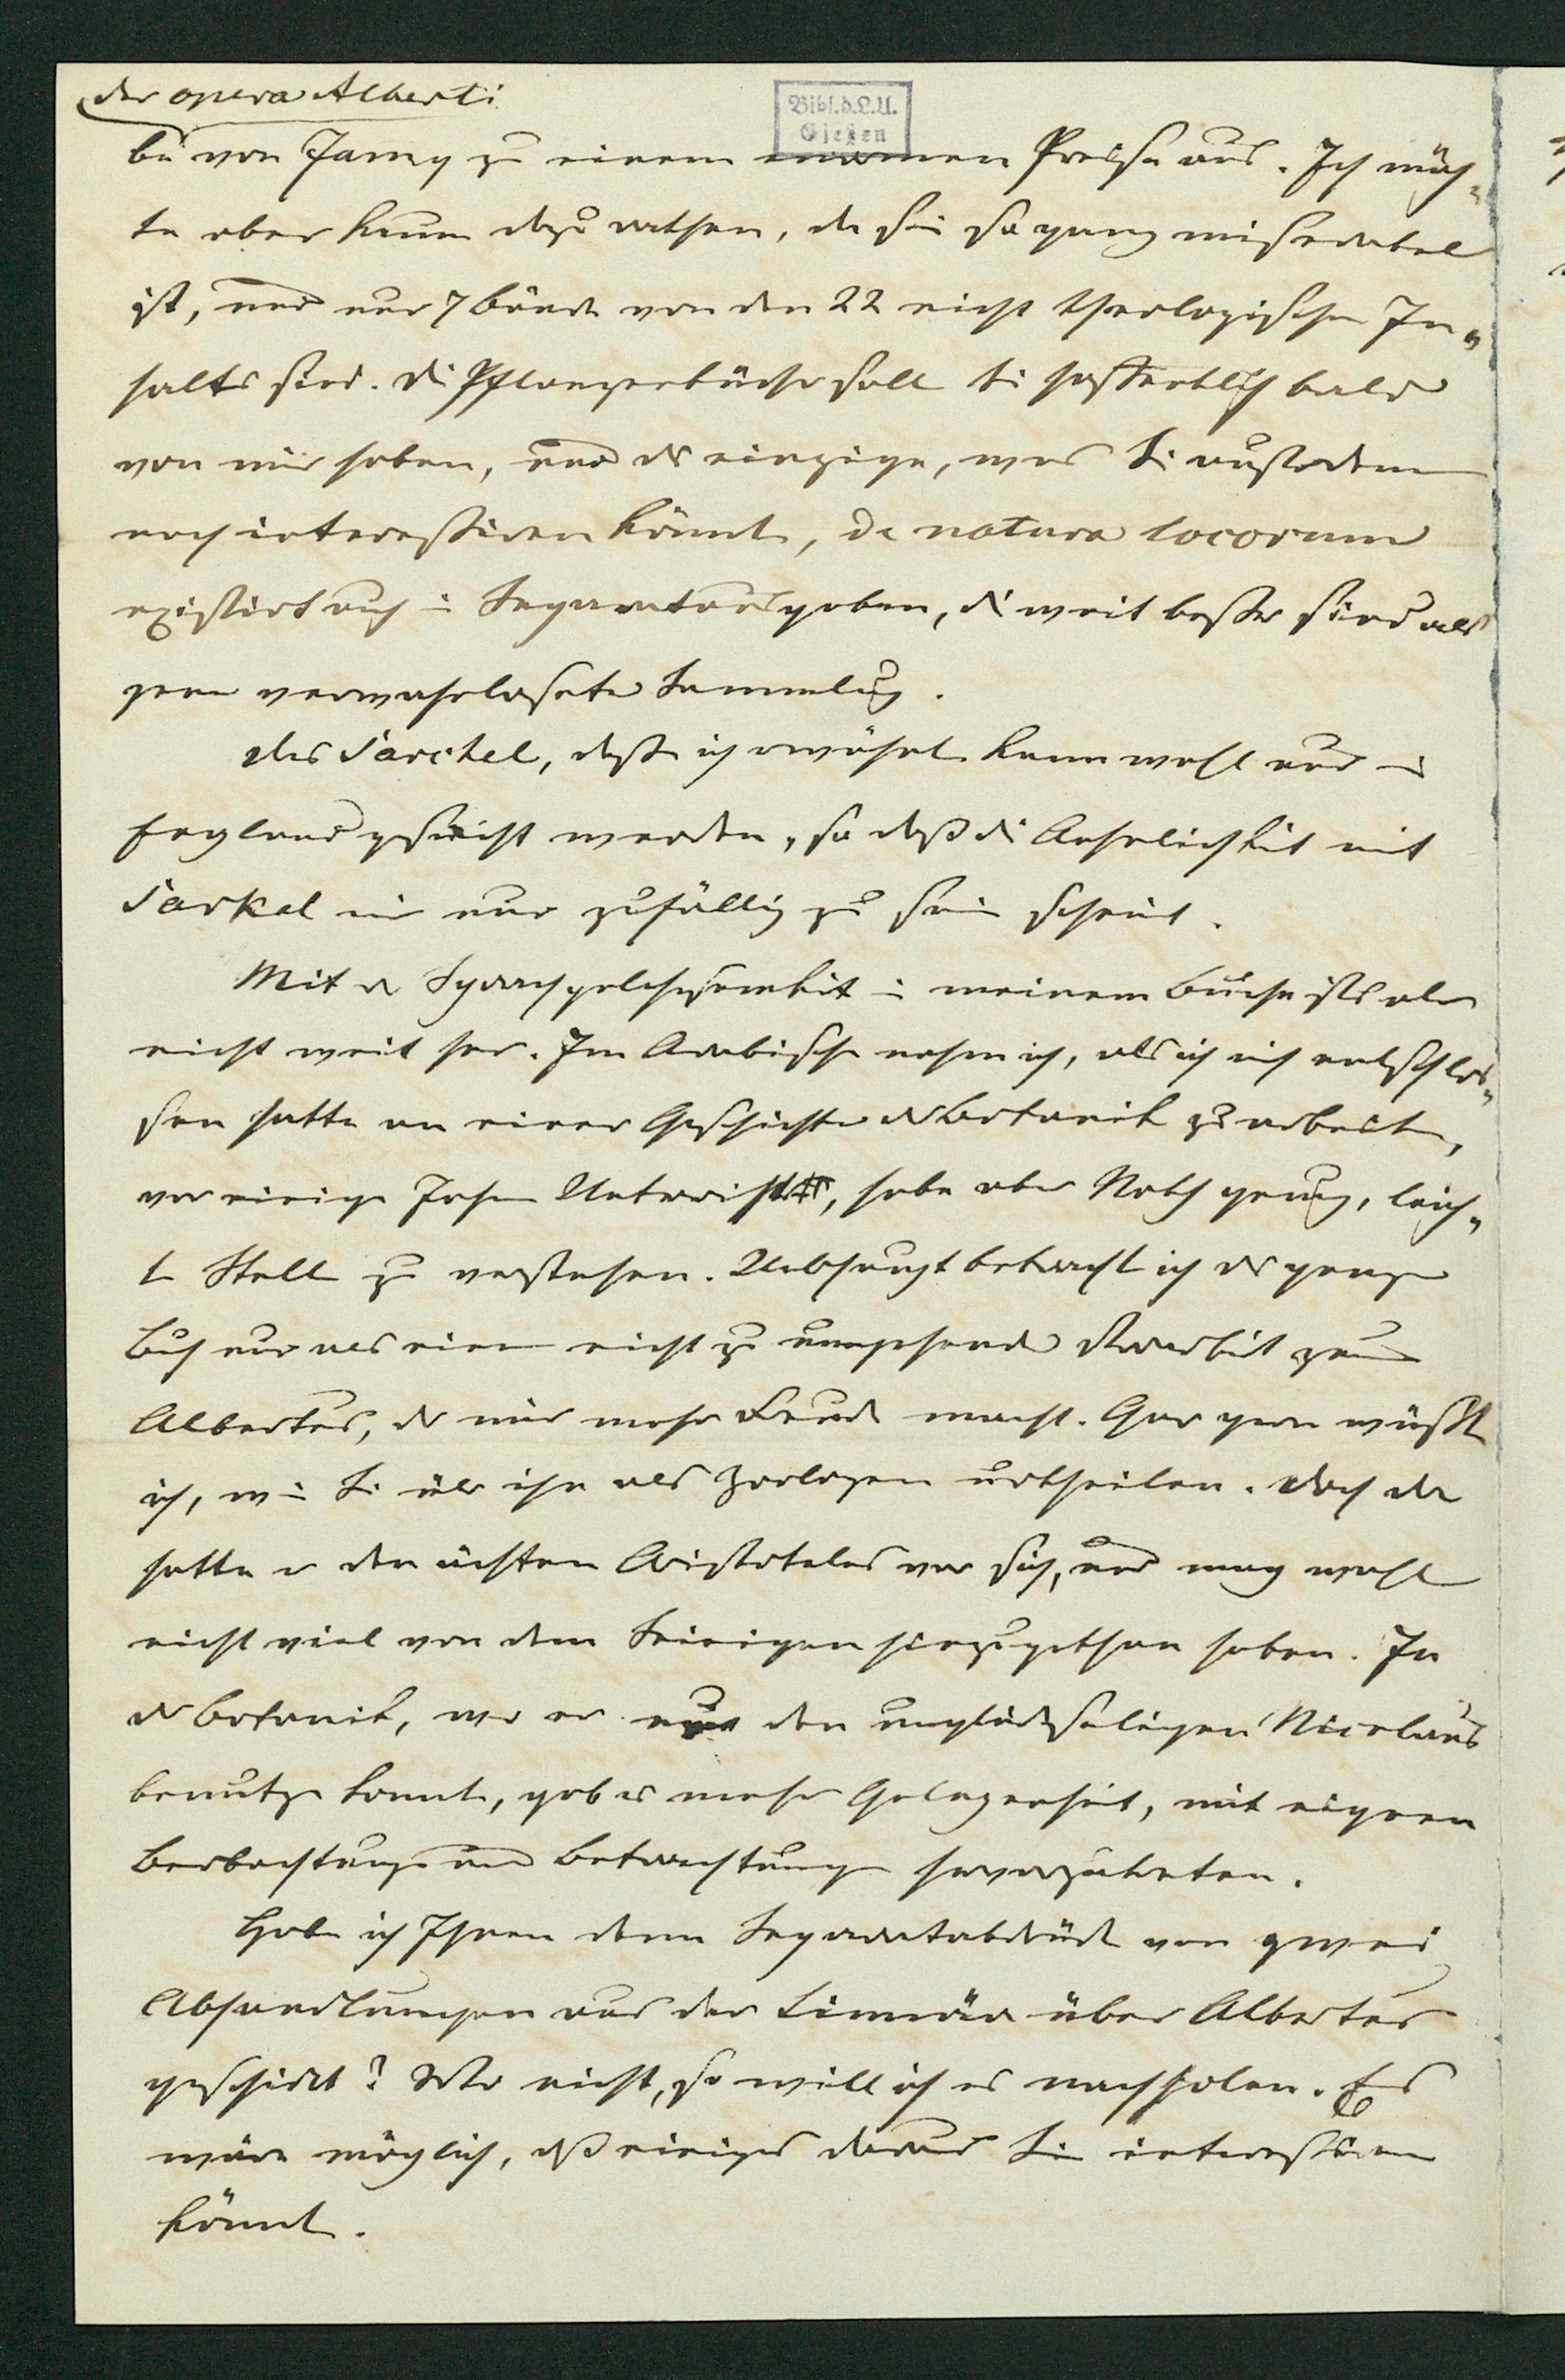 der opera Alberti
Bibl.d.L.U.
Gießen
be von Jamy zu einem enormen Preise aus. Ich möch-
te aber kaum dazu rathen, da sie so ganz miserabel
ist, und nur 7 Bände von den 22 nicht theologischen In-
halts sind. Die Pflanzenbücher sollen Sie hoffentlich bald
von mir haben, und das einzige, was Sie außerdem
noch interessiren könnte, de natura locorum
existirt auch in Separatausgaben, die weit besser sind als
jene verwahrloseste Sammlung.
Das Sarchel, dessen ich erwähnte kann wohl nur in
England gesucht werden, so daß die Aehnlichkeit mit
Sarkel mir nur zufällig zu sein scheint.
Mit der Sprachgelehrsamkeit in meinem Buche ists aber
nicht weit her. Im Arabischen nahm ich, als ich mich entschlos-
sen hatte an einer Geschichte der Botanik zu arbeiten,
vor einigen Jahren Unterricht, habe aber Noth genug, leich-
te Stellen zu verstehen. Ueberhaupt betrachte ich das ganze
Buch nur als eine nicht zu umgehende Vorarbeit zum
Albertus, der mir mehr Freude macht. Gar gern wüßte
ich, wie Sie über ihn als Zoologen urtheilen. Doch da
hatte er den ächten Aristoteles vor sich, und mag wohl
nicht viel von dem Seinigen hinzugethan haben. In
der Botanik, wo er nur den unglückseligen Nicolaus
benutzen konnte, gab es mehr Gelegenheit, mit eigenen
Beobachtungen und Betrachtungen hervorzutreten.
Habe ich Ihnen denn Separatabdrücke von zwei
Abhandlungen aus der Linnäa über Albertus
geschickt? Wo nicht, so will ich es nachholen. Es
wäre möglich, daß einiges daraus Sie interessiren
könnte.